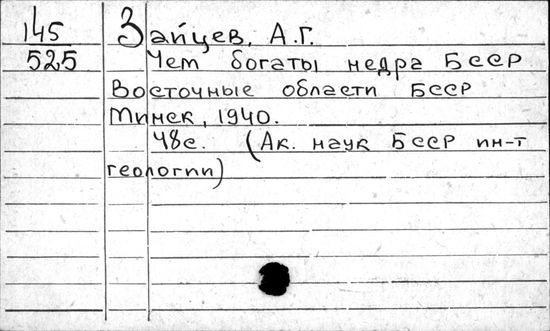 145 Зайцев, А.Г.
525 Чем богаты недра БССР
Восточные области БССР
Минск, 1940.
48с. (Ак. наук БССР ин-т
геологии)